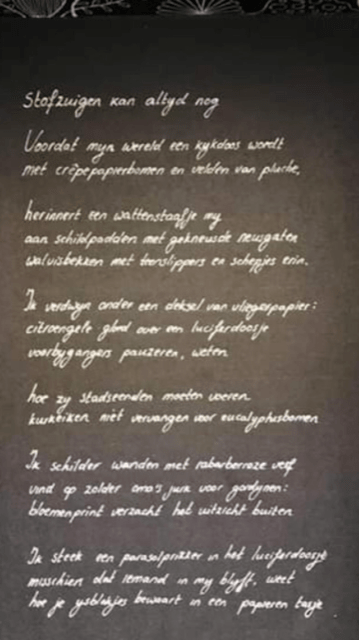 Stofzuigen kan altyd nog
Voordat myn wereld een kykdoos wordt
met crêpepapierbomen en velden van pluche,
herinnert een wattenstaafje my
aan schildpadden met gekneusde neusgaten
walvisbekken met teenslippers en schepjes erin.
Ik verdwyn onder een deksel van vliegerpapier:
citroengele gloed over een luciferdoosje
voorbygangers pauzeren, weten
hoe zy stadseenden moeten voeren
kurkeiken niet vervangen voor eucalyptusbomen
Ik schilder wanden met rabarberroze verf
vind op zolder oma's jurk voor gordynen:
bloemenprint verzacht het uitzicht buiten
Ik steek een parasolprikker in het luciferdoosje
misschien dat iemand in my blyft, weet
hoe je ysblokjes bewaart in een papieren tasje